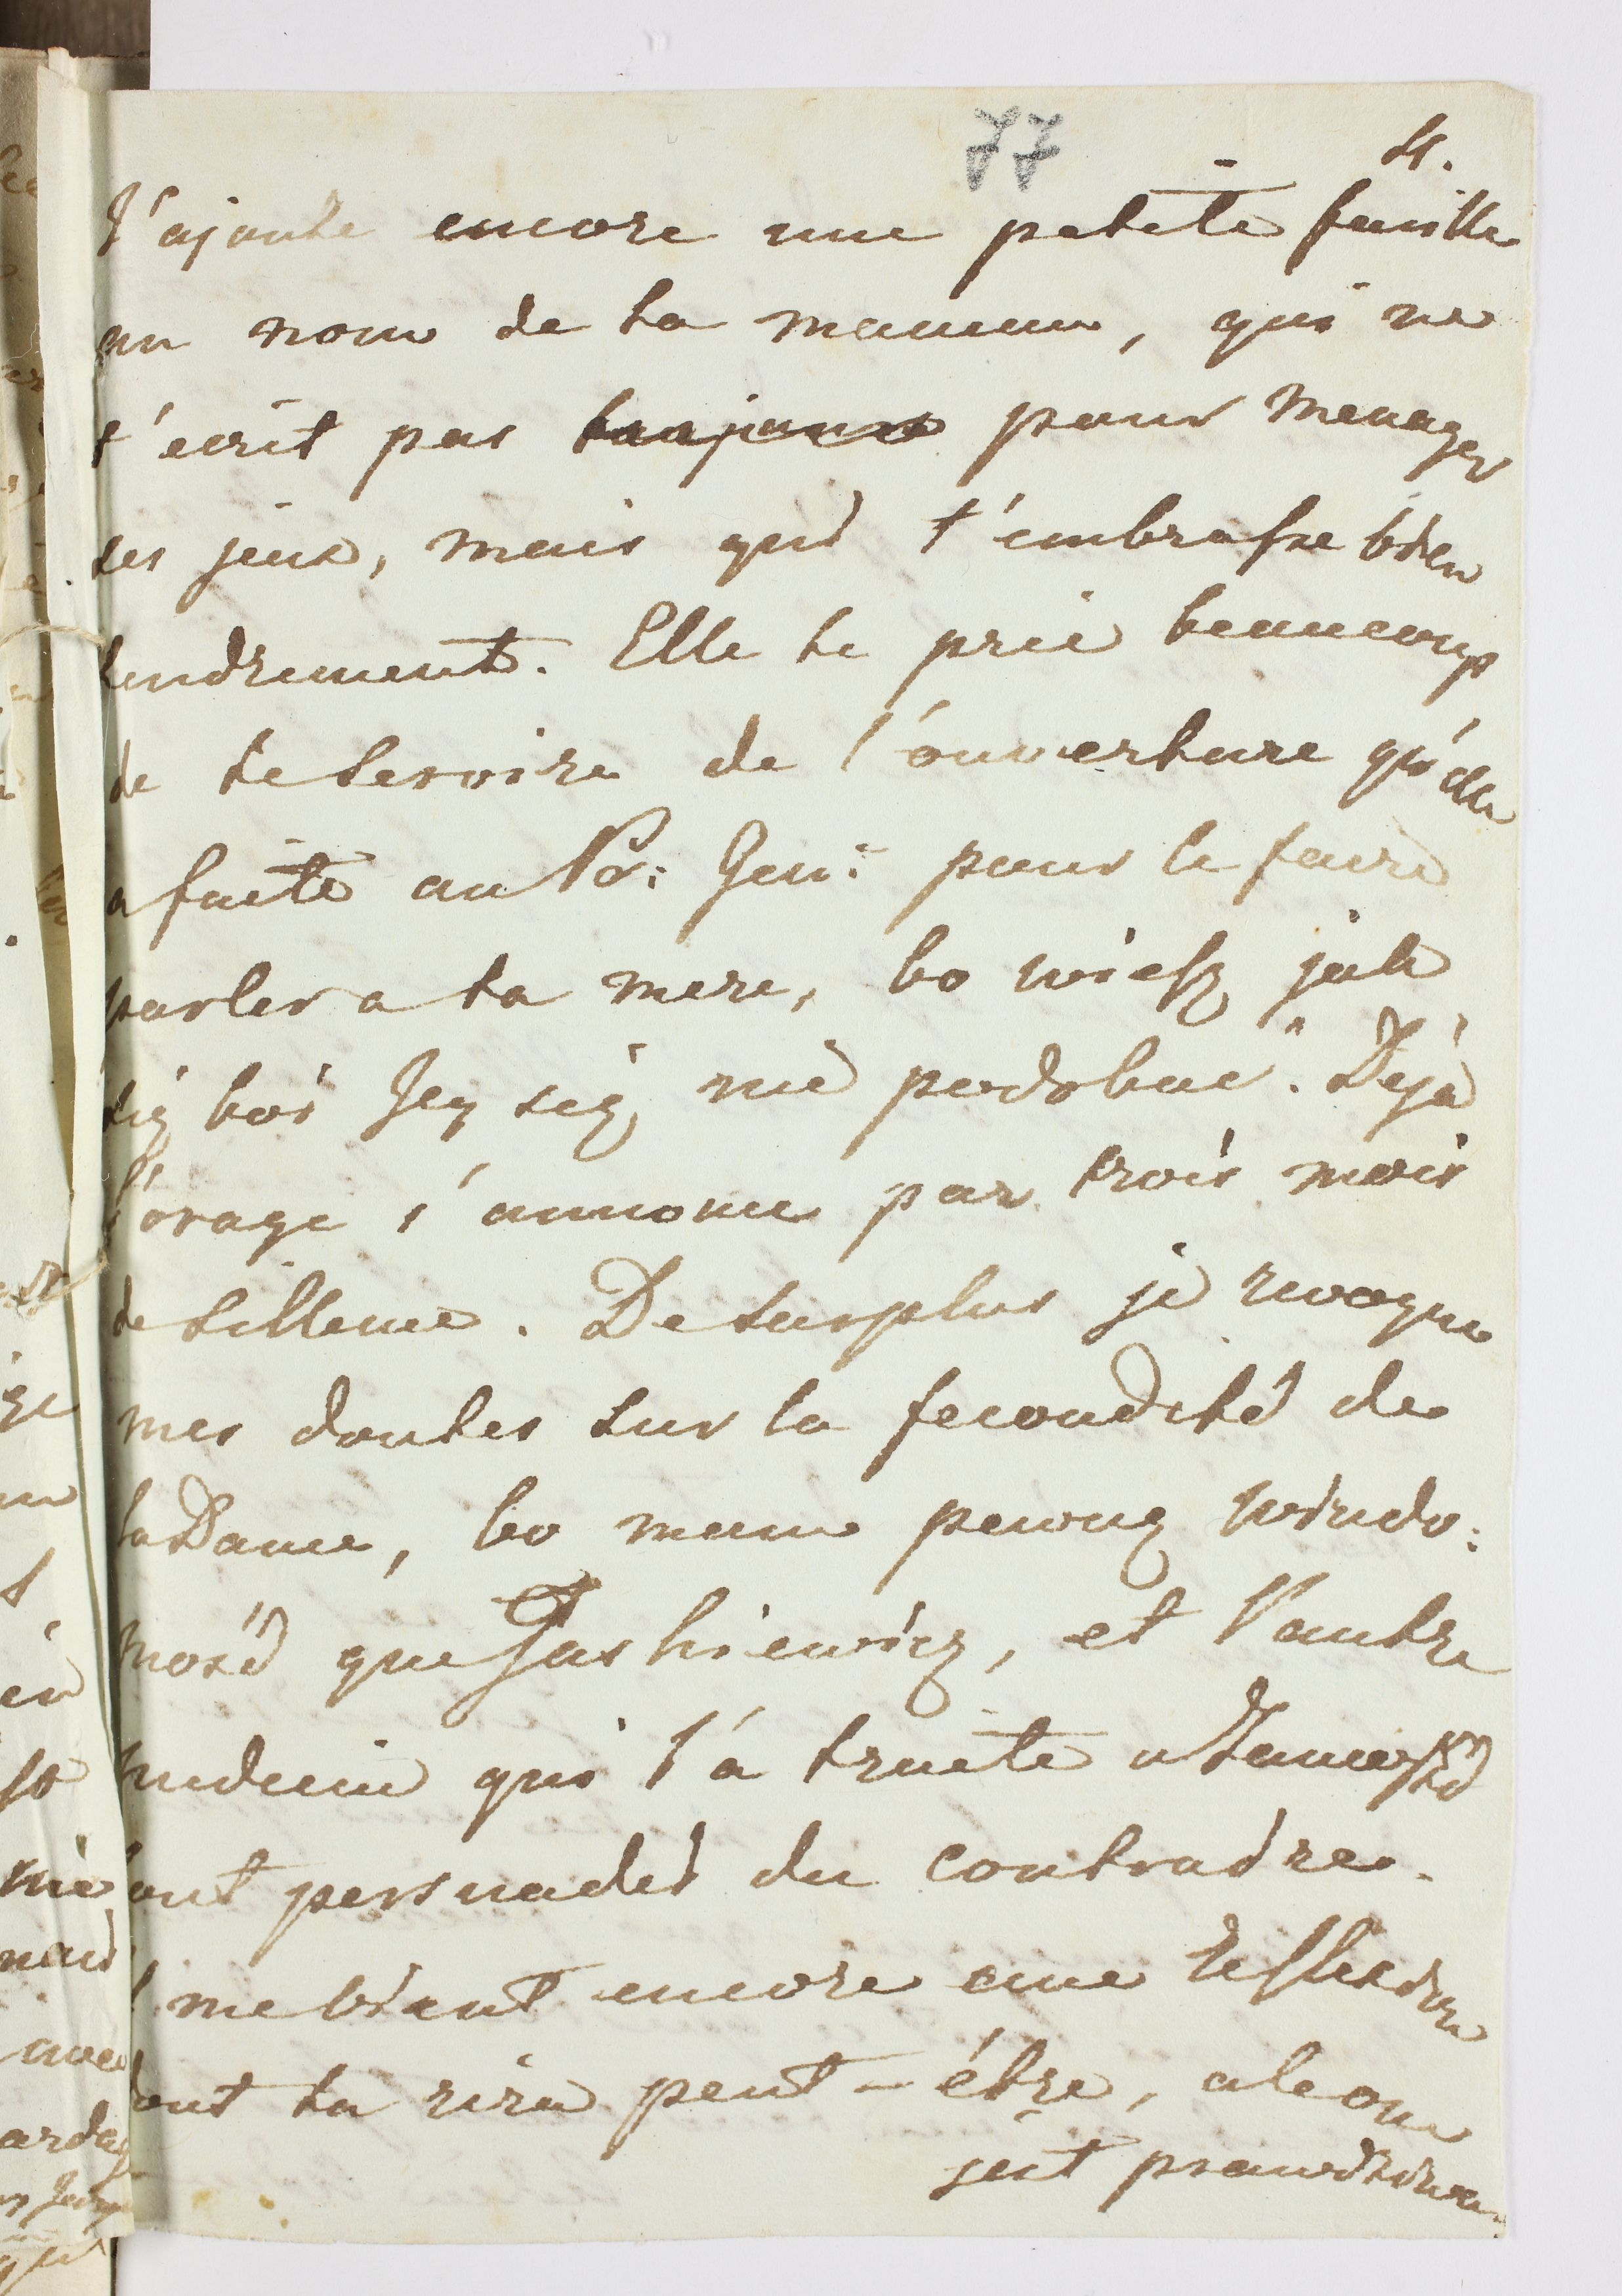 77 4.
J'ajoute encore une petite feuille
au nom de ta maman, qui ne
t'ecrit pas toujours pour menager
ses jeux, mais qui t'embrasse bien
tendrement. Elle te prie beaucoup
de te servire de l'ouverture qu'elle
a faite au Gen: pour le faire
parler a ta mere, bo wiesz jak
się boi Jey się nie podobać. Dejà
l'orage s'annonce par trois mois
de sillence. De surplus je revoque
mes doutes sur la fecondité de
la Dame, bo mam pewną wiado:
mość que Jaskiewicz, et l'autre
medecin qui l'a traite u
sont persuadés du contraire.
Il me vient encore une Reflexion
dont tu rira peut-être, ale ona
jest prawdziwa.